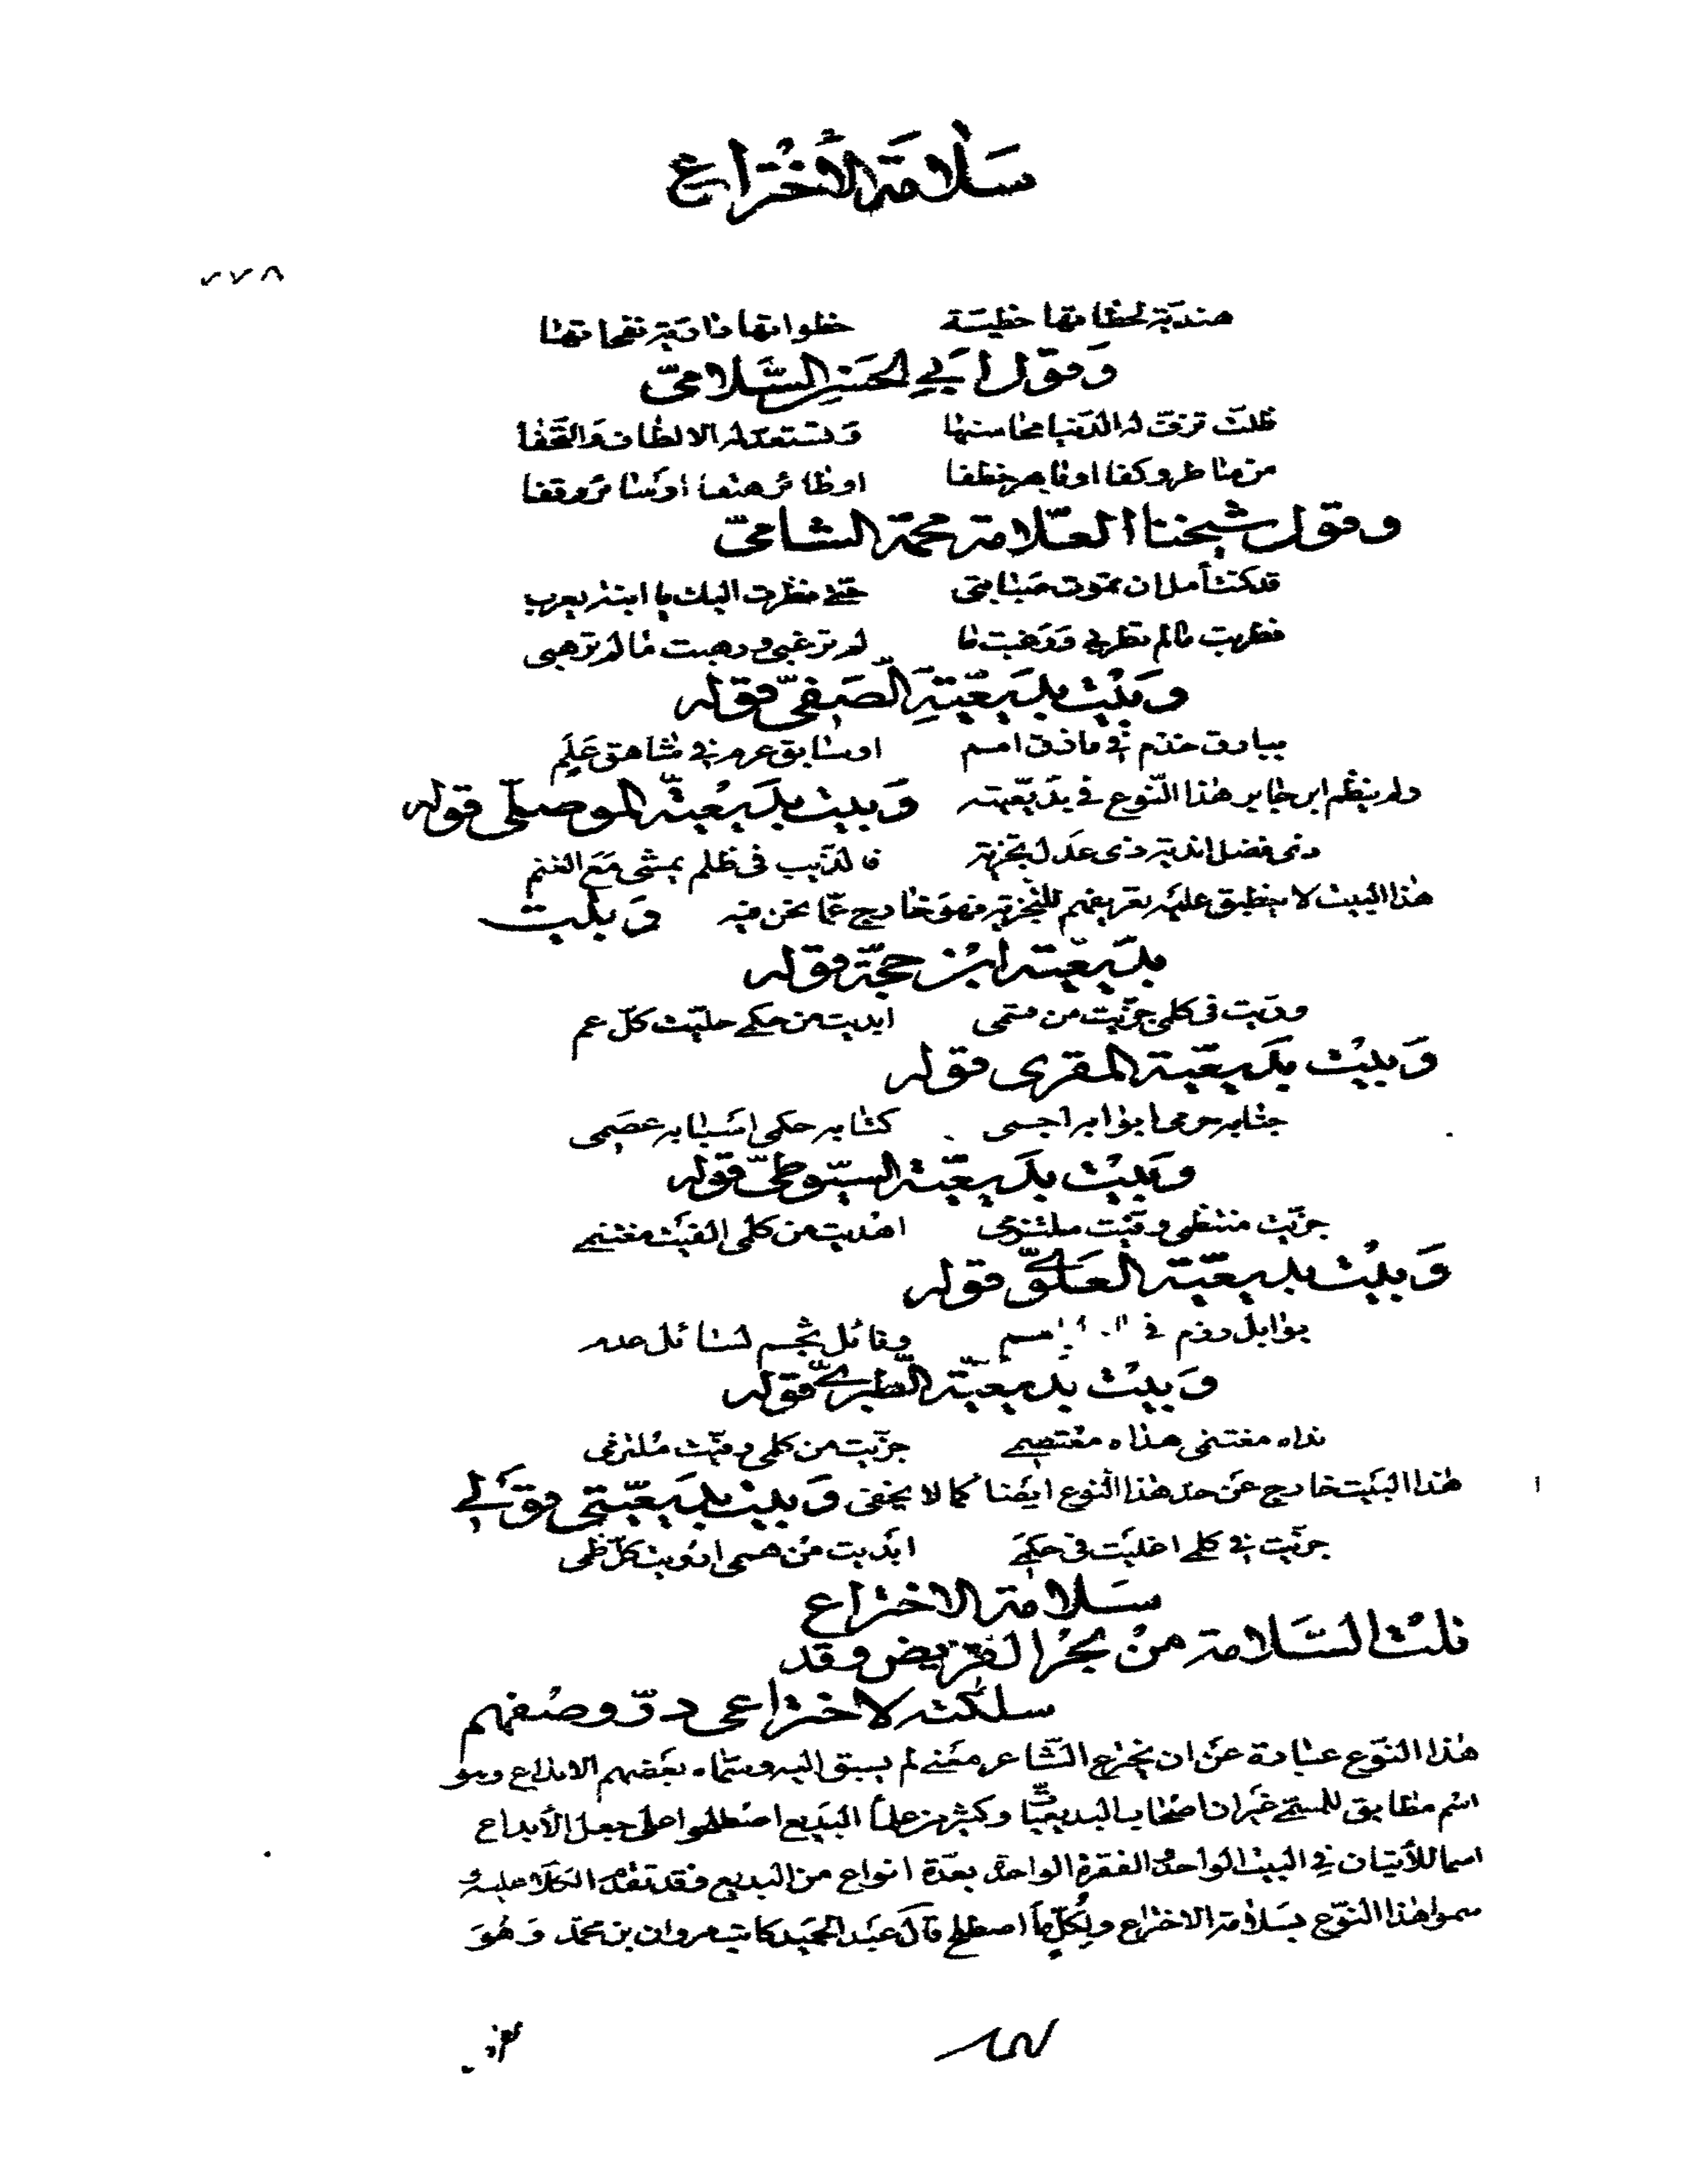 سلامة الاختراع
٧٧٨
هندية لحظاتها خطيّة خطواتها دارية نفحاتها
وقول أبي الحسن السّلامي
ظلت تزف له الدنيا محاسنها وتستعد له الالطاف والتحفا
من صا طر وكفا او بارق خطفا او طائر هتفا او سائر وقفا
وقول شيخنا العلّامة محمد الشامي
قد كنت أمل ان تموت صبابتي حتى نظرت اليك يا ابنة يعرب
فطربت مالم تطربي ورغبت ما لم ترغبي ورهبت ما لم ترهبي
وبيت بديعية الصفي قوله
ببارق خذم في مازق امم او سابق عرم في شاهق علم
ولم ينظم ابن جابر هذا النوع في بديعيته وبيت بديعية الموصلي قوله
ذى عدل بتجزية فالذئب فى ظلم يمشى مع الغنم
هذا البيت لا ينطبق عليه تعريفهم للتجزية فهو خارج عما نحن فيه وبيت
بديعية ابن حجة قوله
وريت فى كلمى جزيت من قسمى ابديت من حكمي جليت كل عم
وبيت بديعية المقرى قوله
كتابه حكمى اسبابه عصمى
وبيت بديعية السيوطي قوله
جزيت منتظمى وفيت ملتزمي اهديت من كلمى الفيت مغتنمي
وبيت بديعية العلوي قوله
بوابل رذم في
وبيت بديعية الطبري قوله
نداه مغتنمى هداه معتصمي جزيت من كلمى وفيت ملتزمى
هذا البيت خارج عن حد هذا النوع ايضا كما لا يخفى وبيت بديعيتي قولي
جزيت في كلمي اغليت فى حكمي ابديت من هممى ارويت كل ظمى
سلامة الاختراع
نلت السلامة من بحر القريض وقد
سلكته لاختراعى در وصفهم
هذا النوع عبارة عن ان يخترع الشاعر معنى لم يسبق اليه وسماه بعضهم الابداع وهو
اسم مطابق للمسمى غير ان اصحاب البديعيات وكثير من علماء البديع اصطلحوا على جعل الأبداع
اسما للأتيان في البيت الواحد او الفقرة الواحدة بعدة انواع من البديع فقد تقدم الكلام عليه و
سموا هذا النوع بسلامة الاختراع ولكل ما اصطلح قال عبد الحميد كاتب مروان بن محمد وهو